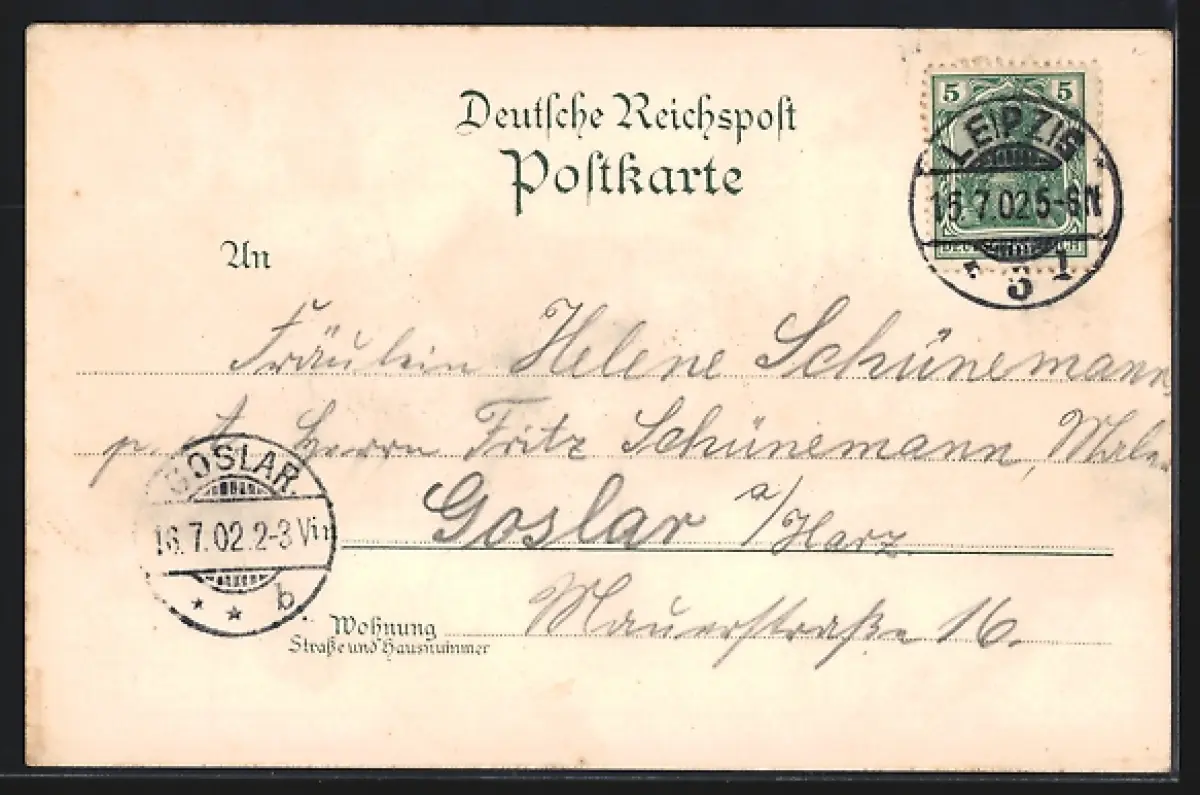 Deutsche Reichspost
Postkarte
5 5
LEIPZIG
7.02 5-6N
DEUTSCHES REICH
3 1
An
Fräulein Helene Schünemann,
p. A. Herrn Fritz Schünemann, Maler
Goslar a/Harz.
GOSLAR.
16.7.02.2-3 V
* * b.
Wohnung
Straße und Hausnummer
Mauerstraße 16.